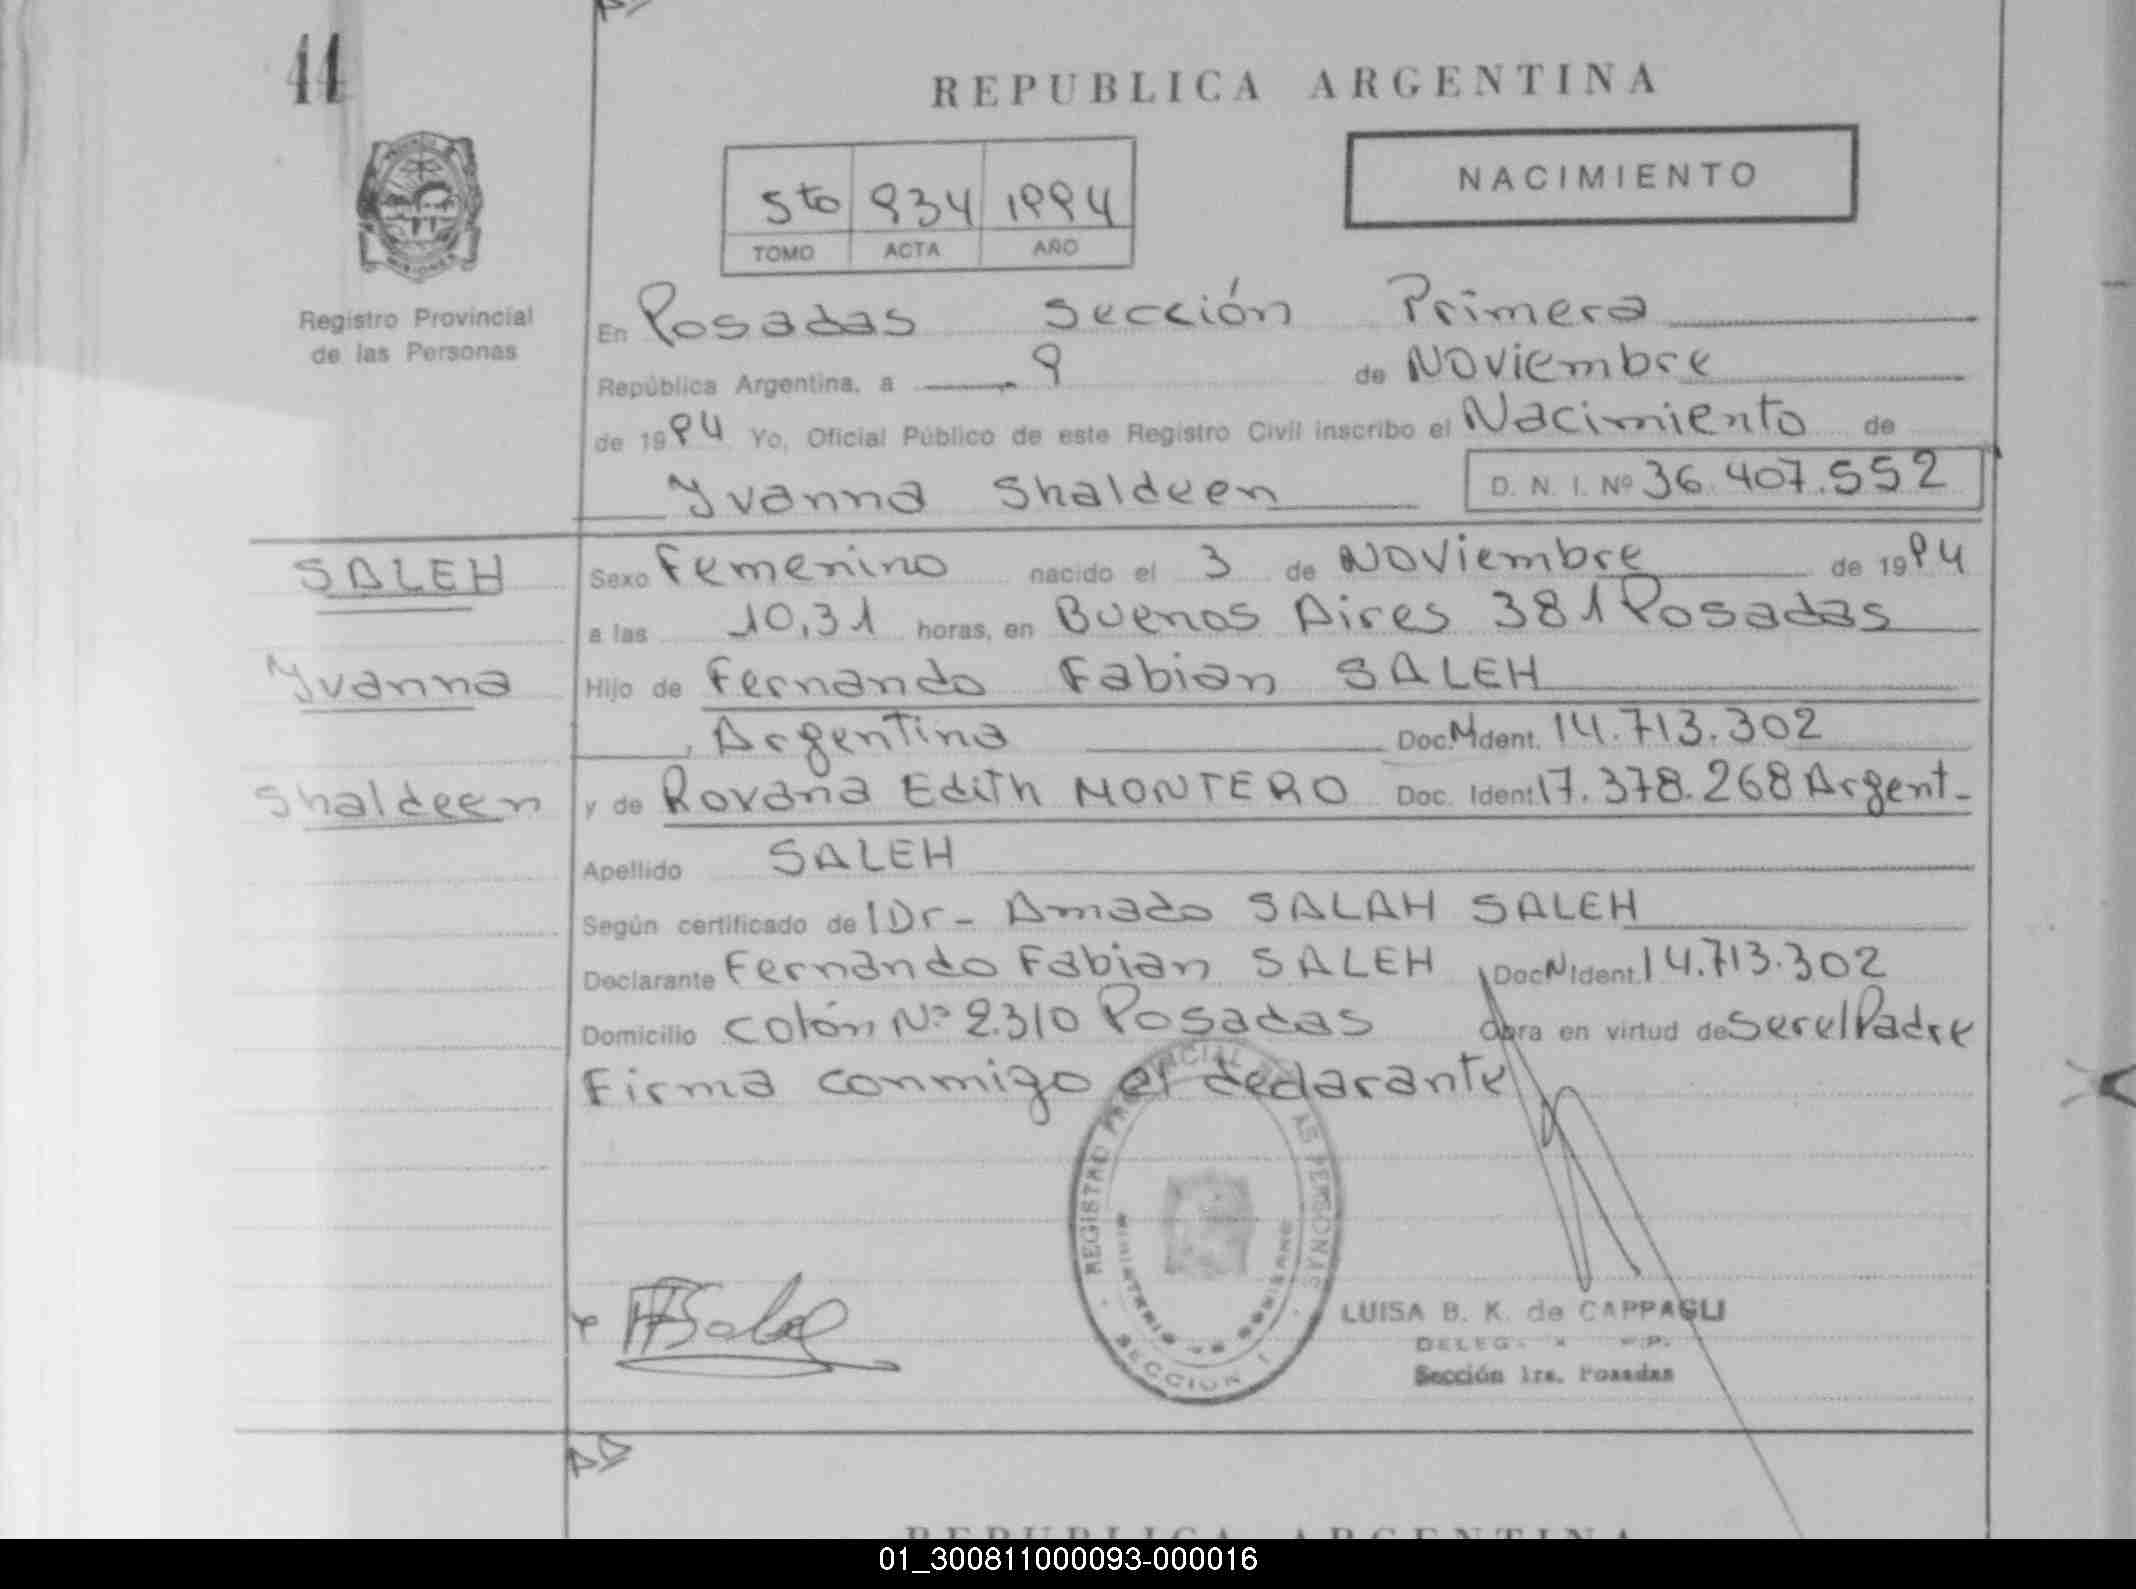 44
REPUBLICA ARGENTINA
NACIMIENTO
5to 934 1994
TOMO ACTA AÑO
MISIONES
Registro Provincial
de las Personas
En Posadas Sección Primera
República Argentina, a 9 de Noviembre
de 1994 Yo, Oficial Público de este Registro Civil inscribo el Nacimiento de
Yvanna Shaldeen D. N. I. Nº 36.407.552
SALEH
Yvanna
Shaldeen
Sexo Femenino nacido el 3 de Noviembre de 1994
a las 10,31 horas, en Buenos Aires 381 Posadas
Hijo de Fernando Fabian SALEH
, Argentina Doc.NIdent. 14.713.302
y de Roxana Edith MONTERO Doc. Ident 17.378.268 Argent-
Apellido SALEH
Según certificado de l Dr- Amado SALAH SALEH
Declarante Fernando Fabian SALEH DocNIdent. 14.713.302
Domicilio Colón Nº 2.310 Posadas Obra en virtud de ser el Padre
Firma conmigo el declarante
REGISTRO PROVINCIAL DE LAS PERSONAS
SECCION I
LUISA B. K. de CAPPAGLI
Sección 1ra. Posadas
REPUBLICA ARGENTINA
01_300811000093-000016